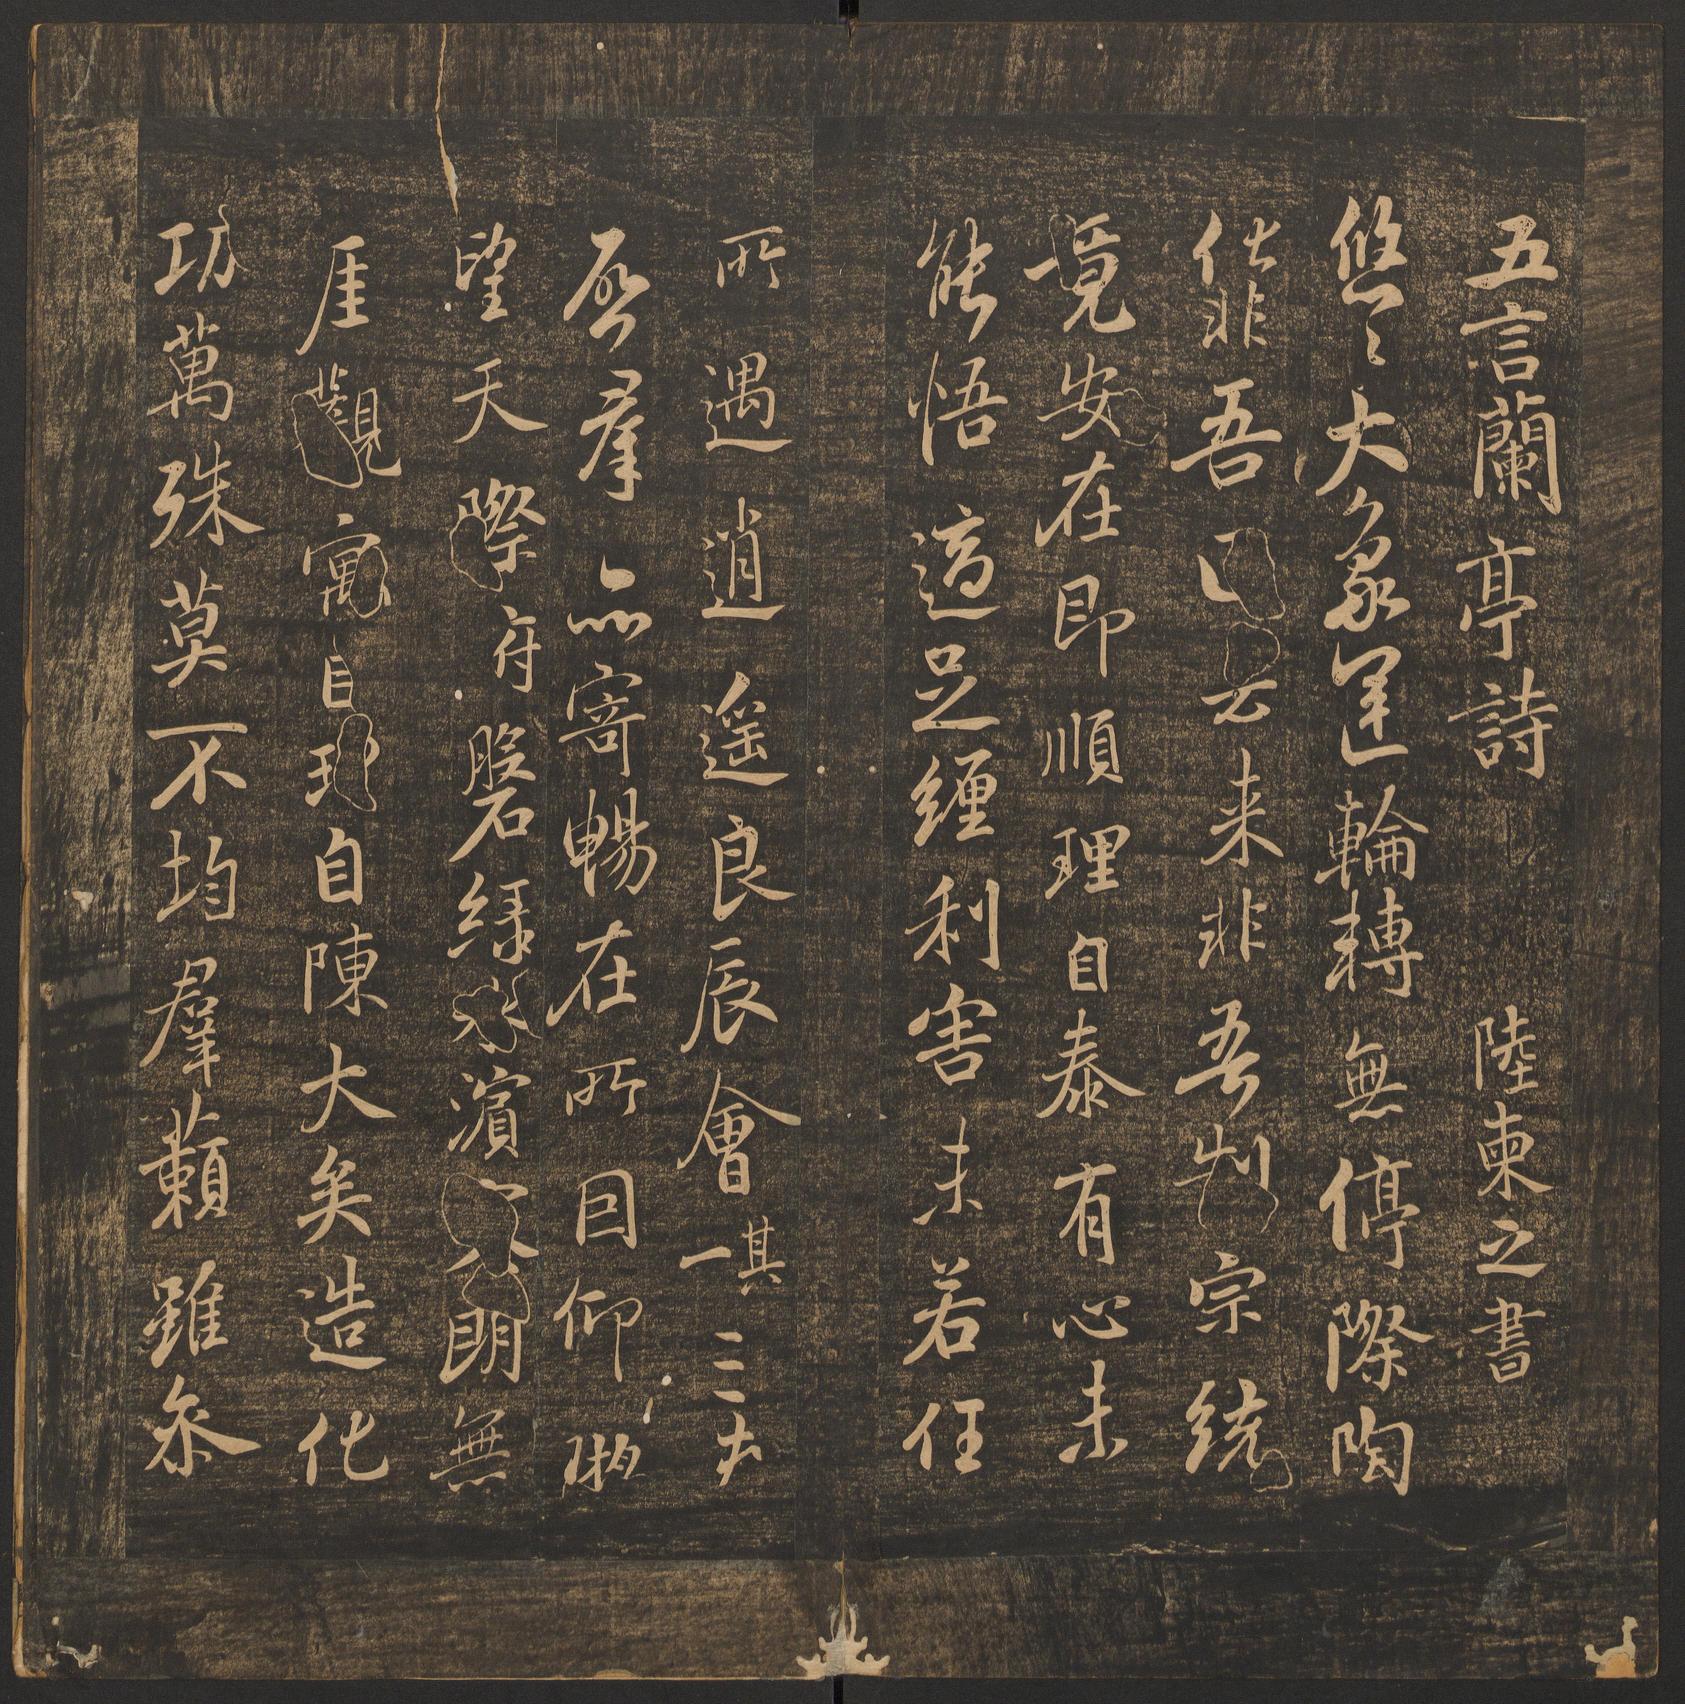 五言蘭亭詩 陸柬之書
悠〻大象運輪轉無停際陶
化非吾因去来非吾制宗統
竟安在即順理自泰有心未
能悟適足纏利害未若任
所遇逍遥良辰會其一三春
啓羣品寄暢在所因仰眺
望天際府磐緑水濱寥朗無
厓觀寓目理自陳大矣造化
功萬殊莫不均羣籟雖参